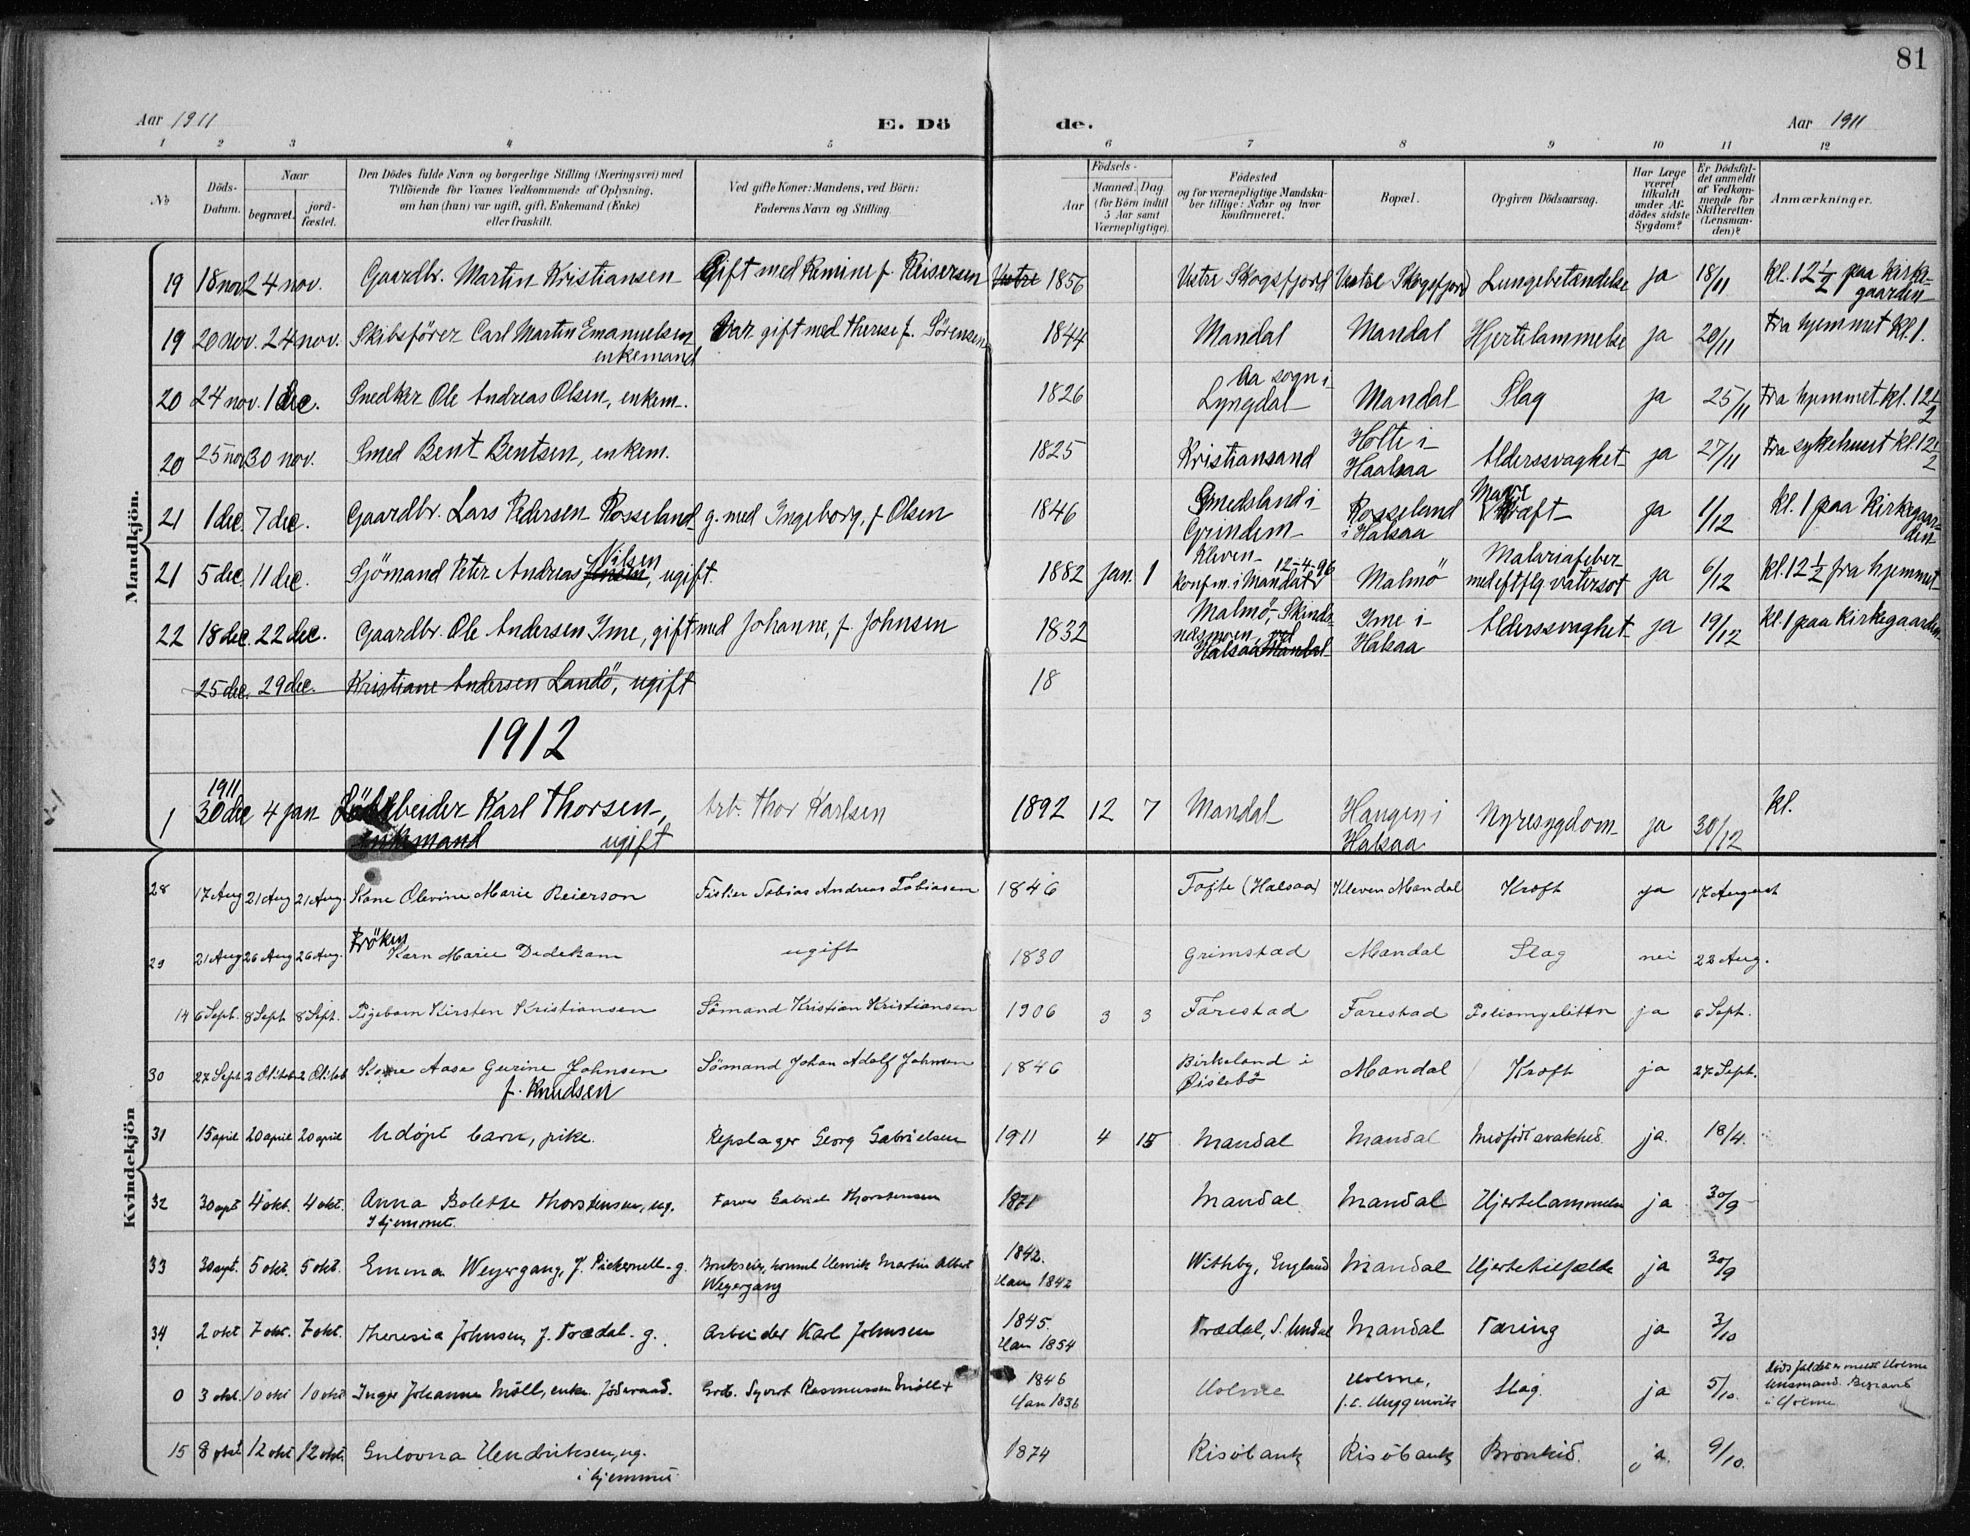 81
Aar 1911 E. Dö de. Aar 1911
1 2 3 4 5 6 7 8 9 10 11 12
No
Döds-Datum.
Naar
begravet.
jord-fæstet.
Den Dödes fulde Navn og borgerlige Stilling (Næringsvei) med
Tilföiende for Voxnes Vedkommende af Oplysning,
om han (hun) var ugift, gift, Enkemand (Enke)
eller fraskilt.
Ved gifte Koner: Mandens, ved Börn:
Faderens Navn og Stilling.
Födsels-
Aar
Maaned. Dag
(for Börn indtil
5 Aar samt
Værnepligtige).
Födested
og for værnepligtige Mandska-
ber tillige: Naar og hvor
konfirmeret.
Bopæl.
Opgiven Dödsaarsag.
Har Læge
været
tilkaldt
under Af-
dödes sidste
Sygdom?
Er Dödsfal-
det anmeldt
af Vedkom-
mende for
Skifteretten
(Lensman-
den)?
Anmærkninger.
Mandkjön.
19 18 nov 24 nov. Gaardbr. Martin Kristiansen Gift med Ramine f. Reiersen Vestre 1856 Vestre Skogsfjord Vestre Skogsfjord Lungebetændelse ja 18/11 kl. 12 1/2 paa kirke-
gaarden
19 20 nov. 24 nov. Skibsförer Carl Martin Emanuelsen Var gift med Therese f. Sörensen 1844 Mandal Mandal Hjertelammelse ja 20/11 Fra hjemmet kl. 1.
enkemand
20 24 nov. 1 dec. Snedker Ole Andreas Olsen, enkem. 1826 Aa sogn i
Lyngdal Mandal Slag ja 25/11 Fra hjemmet kl. 12 1/2
20 25 nov 30 nov. Smed Bent Bentsen, enkem. 1825 Kristiansand Holte i
Halsaa Alderssvaghet ja 27/11 Fra sykehuset kl. 12 1/2
21 1 dec. 7 dec. Gaardbr. Lars Pedersen Rosseland g. med Ingeborg, f. Olsen 1846 Smedsland i
Grindem Rosseland
i Halsaa Mave
kræft ja 1/12 kl. 1 paa Kirkegaar-
den
21 5 dec. 11 dec. Sjömand Peter Andreas Jensen Nilsen, ugift. 1882 Jan. 1 Kleven
konfm. i Mandal 12-4-96 Malmö Malariafeber
med eftflg vatersot ja 6/12 kl. 12 1/2 fra hjemmet
22 18 dec. 22 dec. Gaardbr. Ole Andersen Ime, gift med Johanne, f. Johnsen 1832 Malmö, Skinds-
næsmoen, ved
Halsaa Mandal Ime i
Halsaa Alderssvaghet ja 19/12 kl. 1 paa kirkegaarden
25 dec. 29 dec. Kristiane Andersen Landö, ugift 18
1912
1911
1 30 dec 4 jan Karl Thorsen, Arb. Thor Karlsen 1892 12 7 Mandal Haugen i
Halsaa Nyresygdom ja 30/12 kl.
enkemand ugift
Kvindekjön
28 17 Aug 21 Aug 21 Aug. Kone Olevine Marie Reierson Fisker Tobias Andreas Tobiasen 1846 Tofte (Halsaa) Kleven Mandal Kræft ja 17 August
29 21 Aug 26 Aug 26 Aug. Fröken Karn Marie Dedekam ugift 1830 Grimstad Mandal Slag nei 22 Aug.
14 6 Sept. 8 Sept 8 Sept. Pigebarn Kirsten Kristiansen Sömand Kristian Kristiansen 1906 3 3 Farestad Farestad ja 6 Sept.
30 27 Sept. 2 Oktob 2 Oktob Kone Aase Gurine Johnsen
f. Knudsen Sömand Johan Adolf Johnsen 1846 Birkeland i
Øislebö Mandal Kræft ja 27 Sept.
31 15 april 20 april 20 april Udøpt barn, pike. Repslager Georg Gabrielsen 1911 4 15 Mandal Mandal Medfödt svakhed. ja. 18/4.
32 30 spt 4 okt. 4 okt. Anna Bolette Thorstensen, ug.
I hjemmet. Farver Gabriel Thorstensen 1871 Mandal Mandal Hjertelammelse ja 30/9
33 30 spt. 5 okt. 5 okt. Emma Weyergang, f. Pickernell g. Brukseier, konsul Henrik Martin Albert
Weyergang 1842.
Han 1842 Withby, England Mandal Hjertetilfælde ja 30/9
34 2 okt 7 okt. 7 okt. Theresia Johnsen, f. Trædal. g. Arbeider Karl Johnsen 1845.
Han 1854 Trædal, S. Undal Mandal Tæring ja 3/10
0 3 okt. 10 okt 10 okt Inger Johanne Möll, enke. Grdb. Syvert Rasmussen Möll + 1846
Han 1836 Holme Holme, Slag. ja 5/10. Dödsfaldet er meldt Holme
lensmand. Begravet
i Holme
15 8 okt 12 okt 12 okt. Gulovna Hendriksen, ug.
i hjemmet 1874 Risöbank Risöbank Bronkid. ja. 9/10.